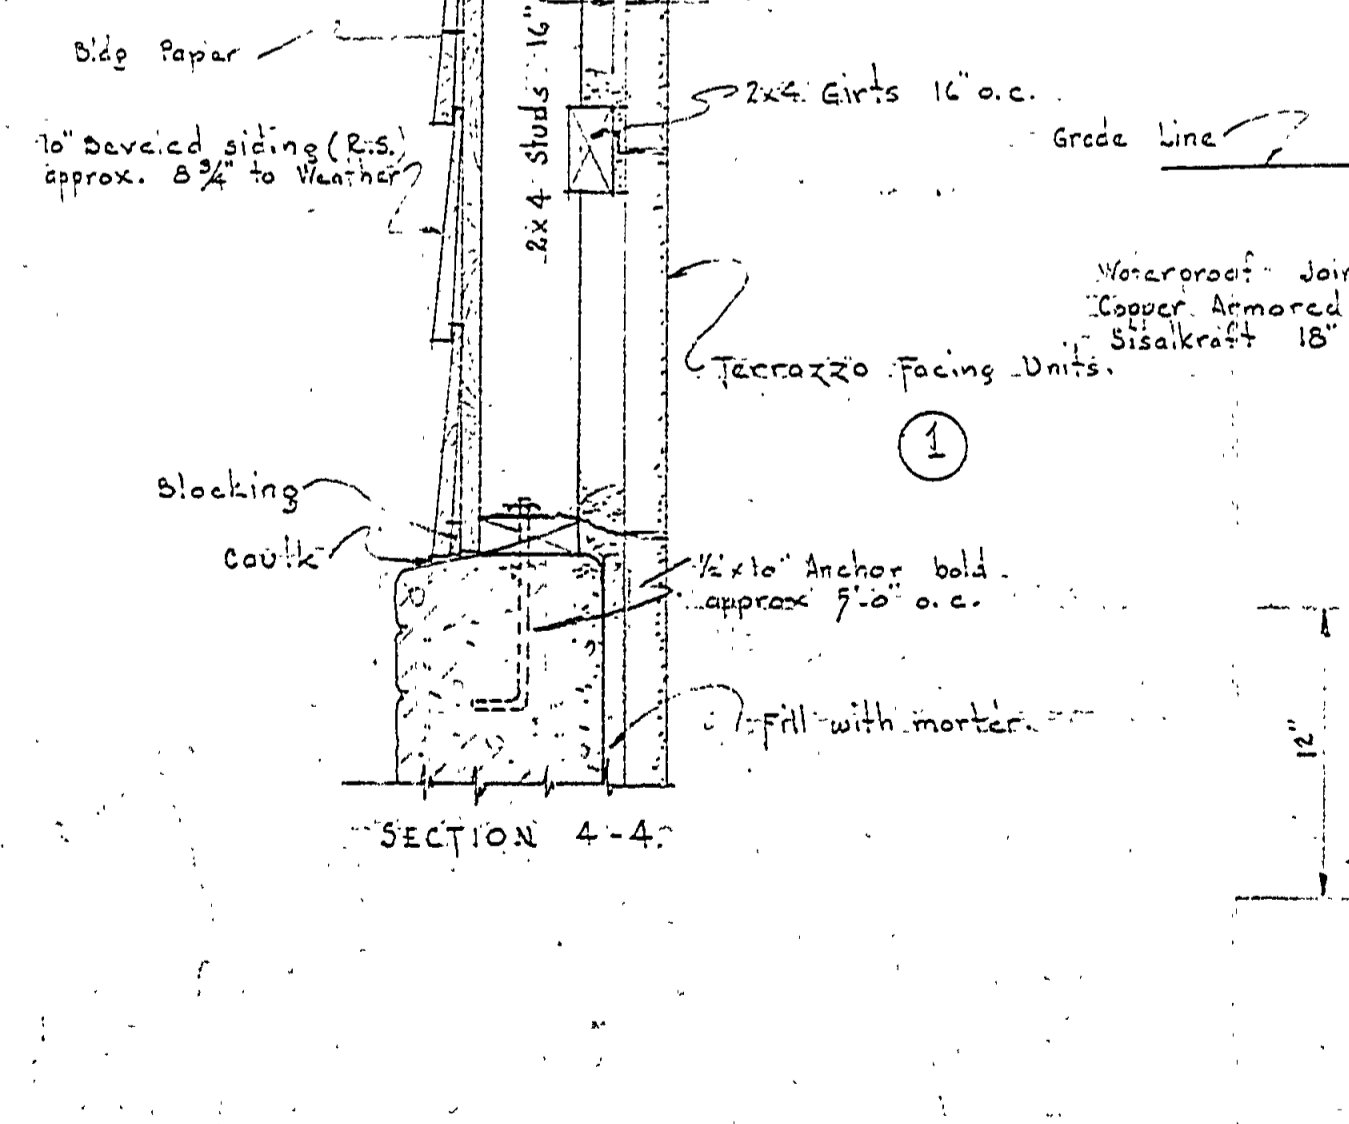 Bldg Paper
10" Beveled siding (R.S.)
approx. 8 3/4" to Weather
2x4 Studs 16"
2x4 Girts 16" o.c.
Grade Line
Waterproof Join
Copper Armored
Sisalkraft 18"
Terrazzo Facing Units.
1
Blocking
Caulk
1/2"x10" Anchor bold
approx 5'-0" o.c.
Fill with morter.
12"
SECTION 4-4